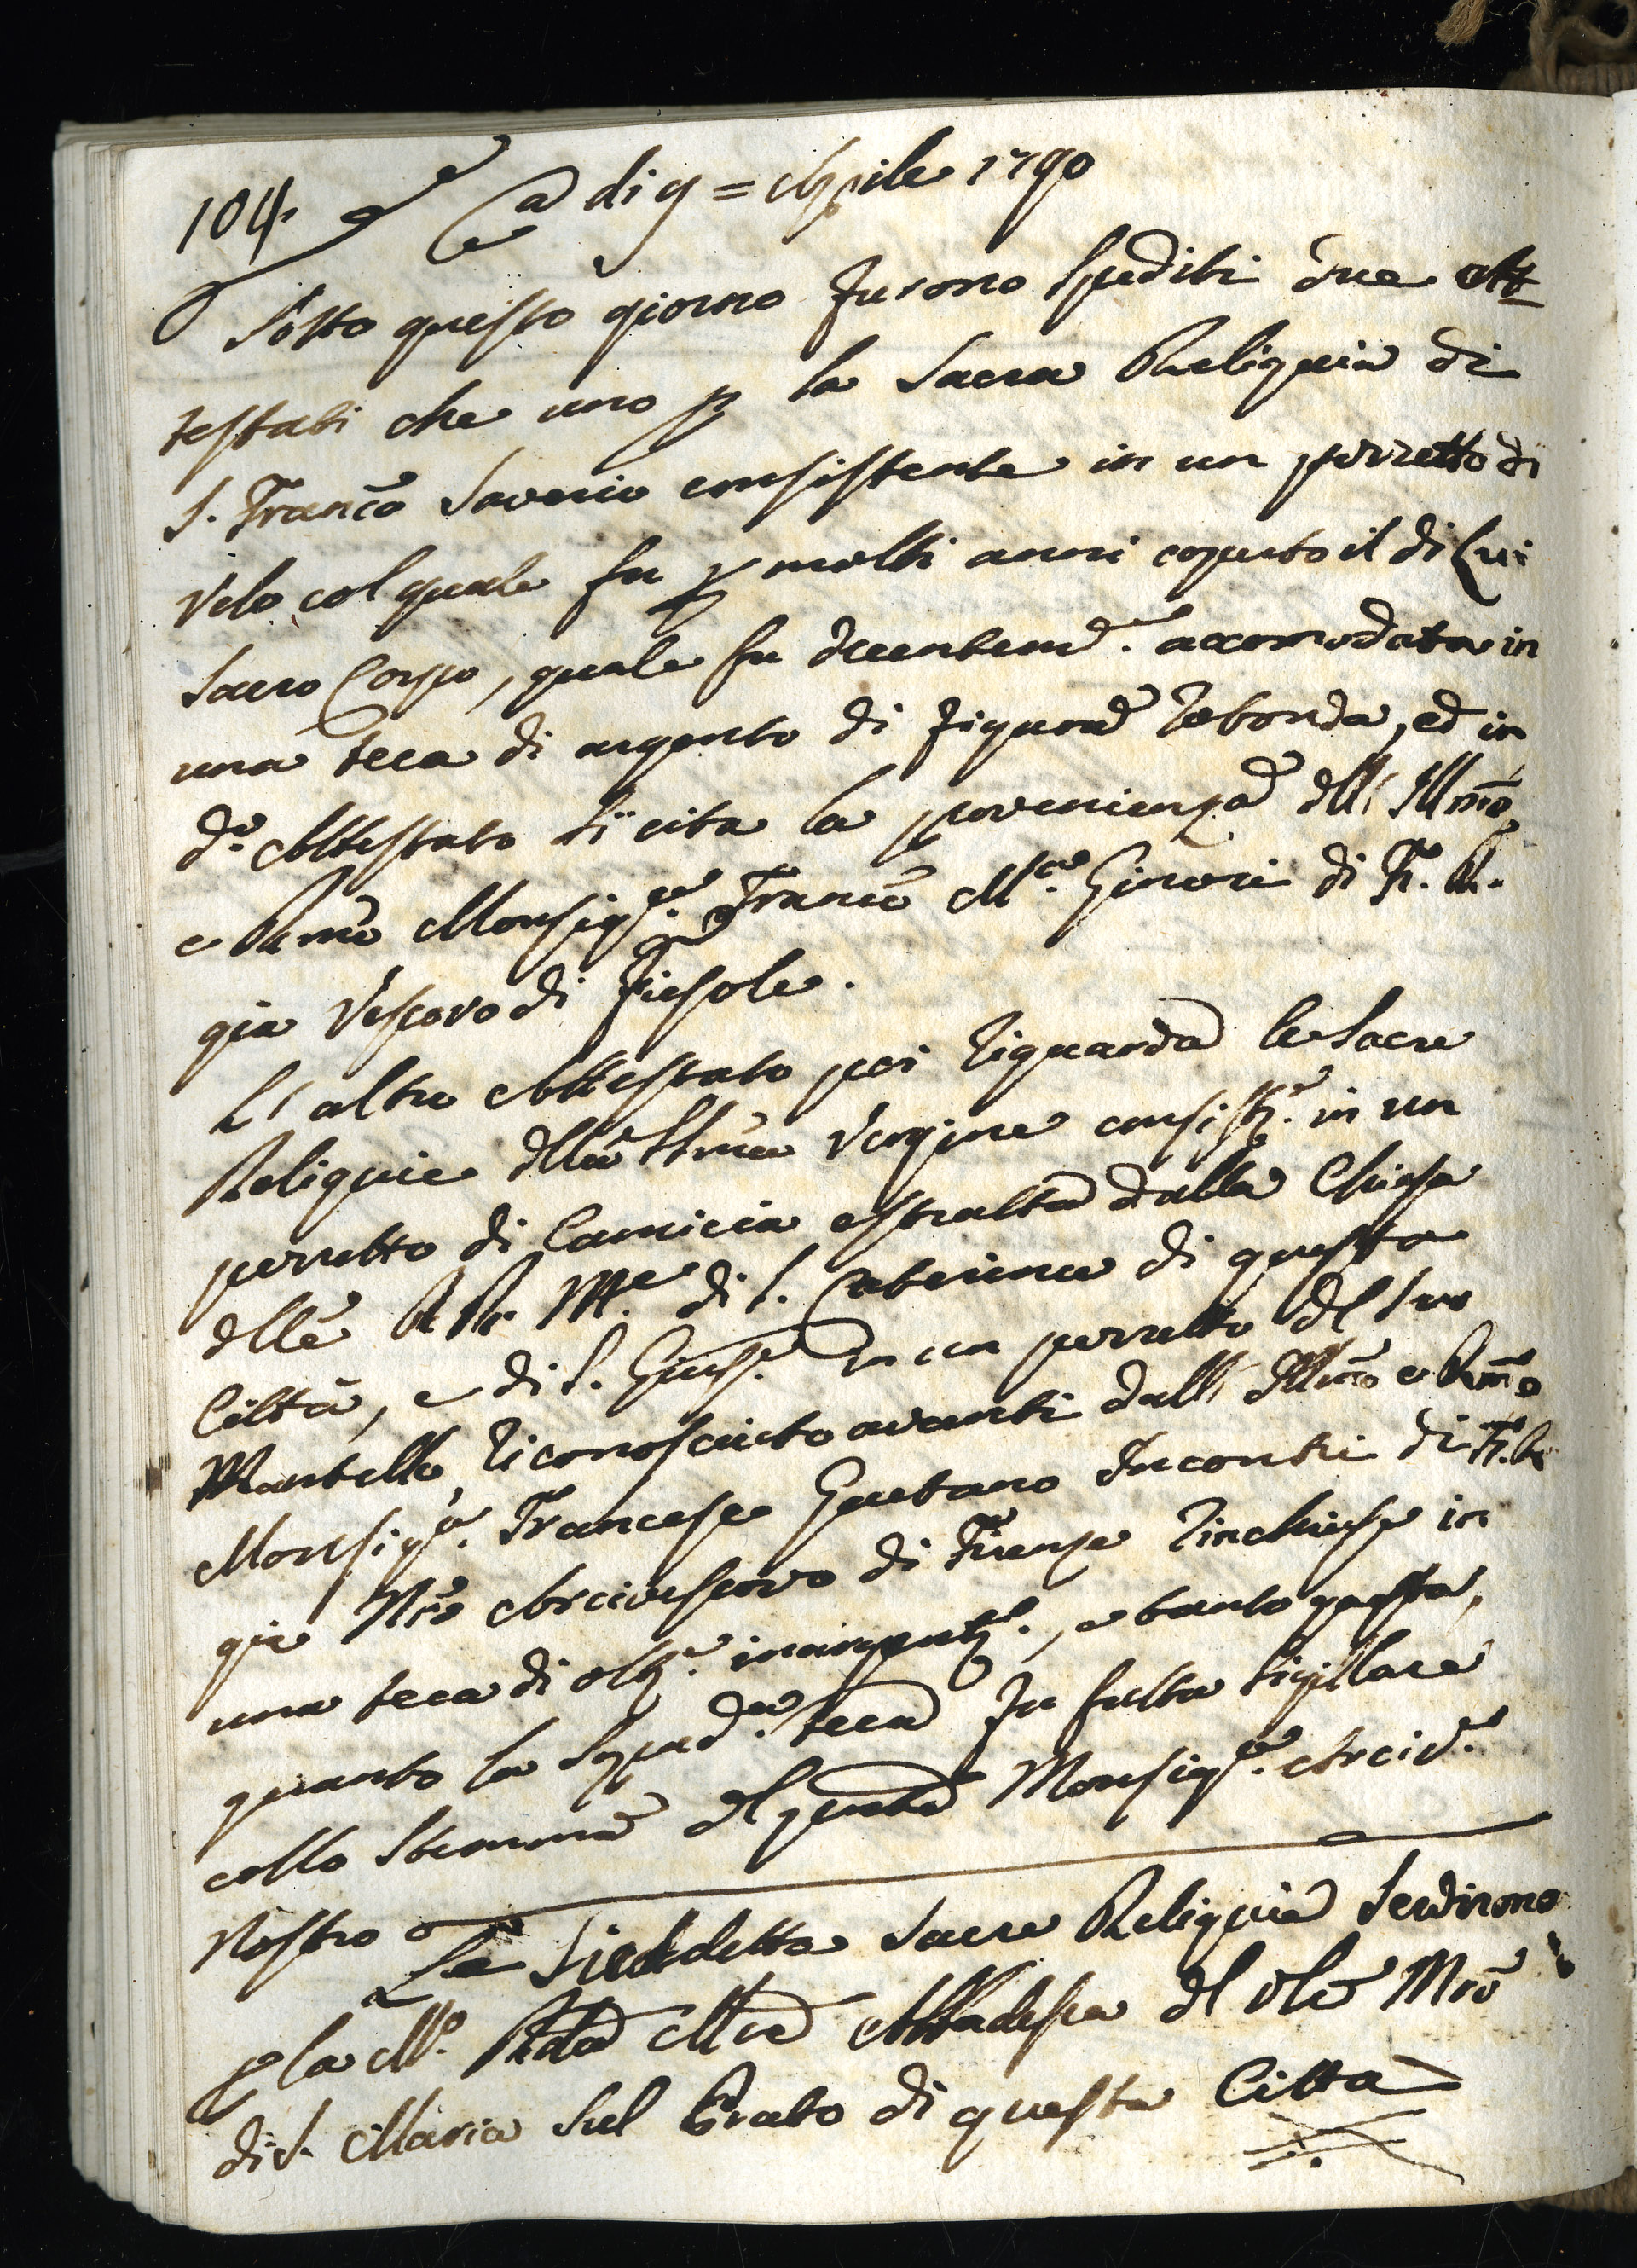 104.
a di 9 = Aprile 1790
Sotto questo giorno furono spediti due At
testati che uno p la Sacra Reliquia di
S. Franco Saverio consistente in un pezzetto di
velo col quale fu p molti anni coperto il di Lui
Sacro Corpo, quale fu decentemte. accomodata in
una teca di argento di figura retonda, ed in
do. Attestato si cita la provenienza dell' Illmo,
e Rmo Monsigre. Franco Ma. Ginori di F. R.
già Vescovo di Fiesole.
L' altro Attestato poi riguarda le Sacre
Reliquie della SSma Vergine consiste. in un
pezzetto di Camicia estratta dalla Chiesa
delle RR. Me. di S. Caterina di questa
Città, e di S. Giuse. in un pezzetto del suo
Mantello, riconosciuto avanti dall' Illmo e Rmo
Monsigr. Francesco Gaetano Incontri di F. R.
già Nro Arcivescovo di Firenze rinchiuse in
una teca di otte. inargente., e tanto questa,
quanto la sopada. teca fu fatta sigillare
collo Stemma del pnte Monsigre. Arcive.
Nostro
Le Sudddette Sacre Reliquie servirono
p la Mo. Rda Mre Abbadessa del Ven Mro
di S. Maria sul Prato di questa Città